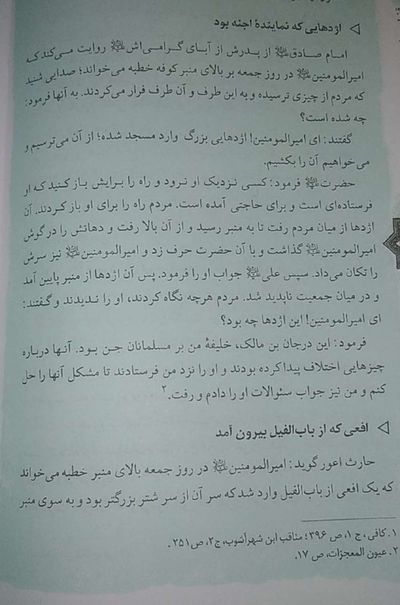 ◁ اژدهایی که نمایندهٔ اجنه بود
امام صادق ﷺ از پدرش از آبای گرامی‌اش ﷺ روایت می‌کند که
امیرالمومنین ﷺ در روز جمعه بر بالای منبر کوفه خطبه می‌خواند؛ صدایی شنید
که مردم از چیزی ترسیده و به این طرف و آن طرف فرار می‌کردند. به آنها فرمود:
چه شده است؟
گفتند: ای امیرالمومنین! اژدهایی بزرگ وارد مسجد شده؛ از آن می‌ترسیم و
می‌خواهیم آن را بکشیم.
حضرت ﷺ فرمود: کسی نزدیک او نرود و راه را برایش باز کنید که او
فرستاده‌ای است و برای حاجتی آمده است. مردم راه را برای او باز کردند. آن
اژدها از میان مردم رفت تا به منبر رسید و از آن بالا رفت و دهانش را در گوش
امیرالمومنین ﷺ گذاشت و با آن حضرت حرف زد و امیرالمومنین ﷺ نیز سرش
را تکان می‌داد. سپس علی ﷺ جواب او را فرمود. پس آن اژدها از منبر پایین آمد
و در میان جمعیت ناپدید شد. مردم هرچه نگاه کردند، او را ندیدند و گفتند:
ای امیرالمومنین! این اژدها چه بود؟
فرمود: این درجان بن مالک، خلیفهٔ من بر مسلمانان جن بود. آنها درباره
چیزهایی اختلاف پیدا کرده بودند و او را نزد من فرستادند تا مشکل آنها را حل
کنم و من نیز جواب سئوالات او را دادم و رفت.۲
◁ افعی که از باب‌الفیل بیرون آمد
حارث اعور گوید: امیرالمومنین ﷺ در روز جمعه بالای منبر خطبه می‌خواند
که یک افعی از باب‌الفیل وارد شد که سر آن از سر شتر بزرگتر بود و به سوی منبر
۱. کافی، ج ۱، ص ۳۹۶؛ مناقب ابن شهرآشوب، ج۲، ص ۲۵۱.
۲. عیون المعجزات، ص ۱۷.